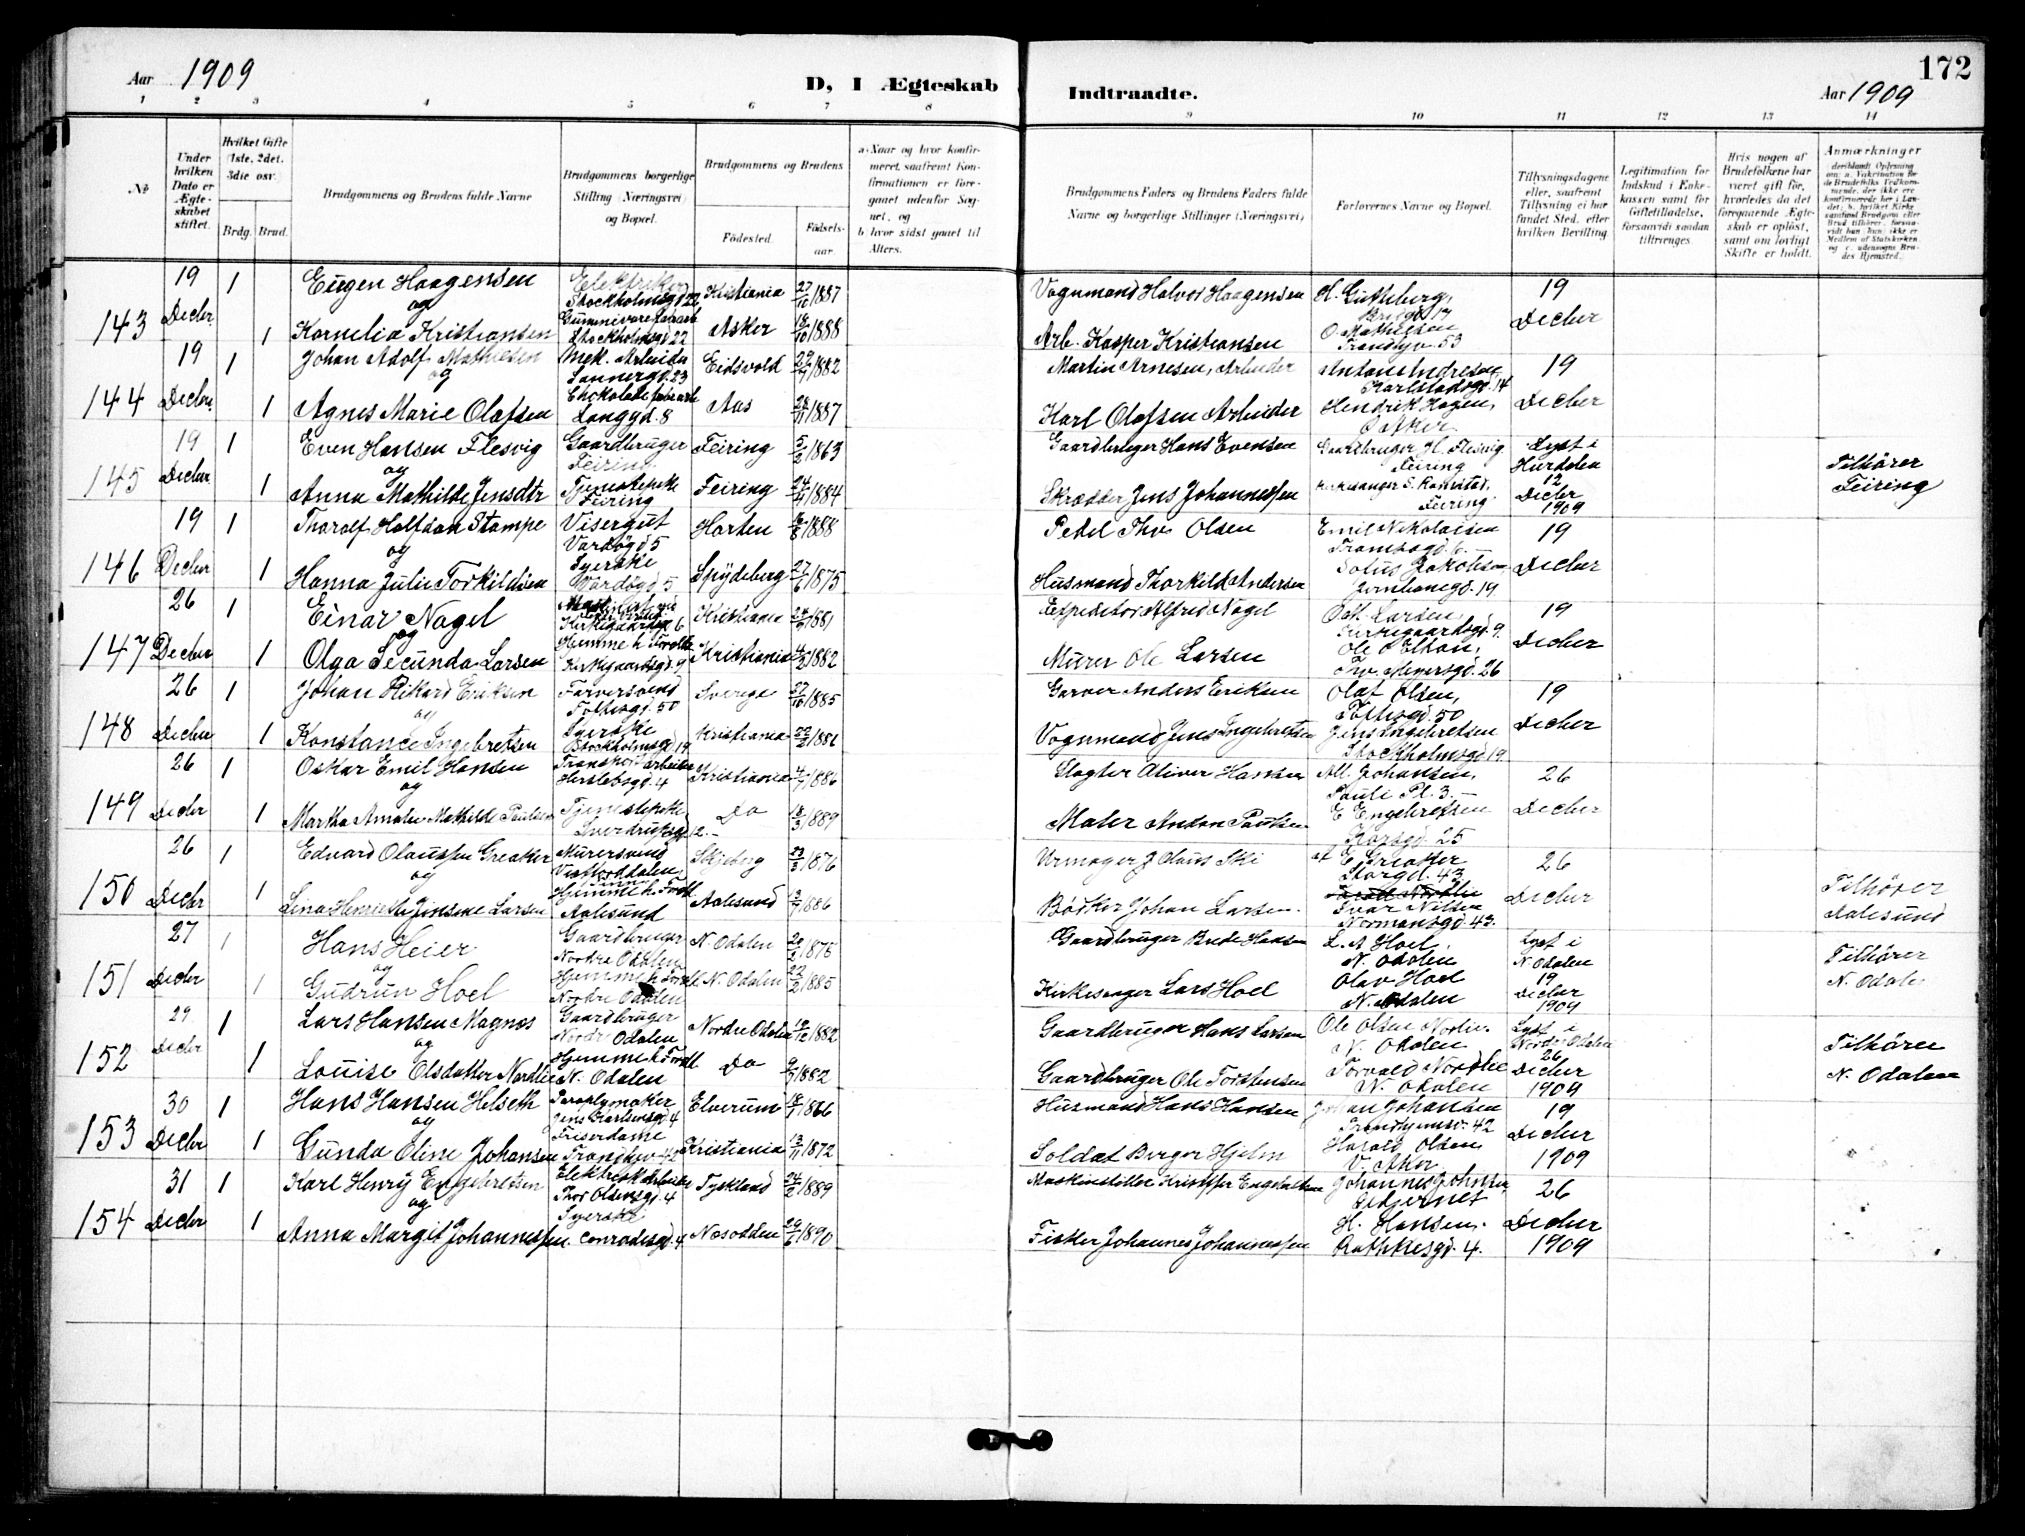 Aar 1909
D, I Ægteskab
Indtraadte.
172
Aar 1909
1 2 3 4 5 6 7 8 9 10 11 12 13 14
No
Under hvilken Dato er Ægteskabet stiftet.
Hvilket Gifte 1ste, 2det, 3die osv.
Brdg. Brud.
Brudgommens og Brudens fulde Navne
Brudgommens borgerlige Stilling (Næringsvei) og Bopæl.
Brudgommens og Brudens
Fødested.
Fødsels-aar.
a. Naar og hvor konfirmeret, saafremt Konfirmationen er foregaaet udenfor Sognet, og
b. hvor sidst gaaet til Alters.
Brudgommens Faders og Brudens Faders fulde Navne og borgerlige Stillinger (Næringsvei)
Forlovernes Navne og Bopæl.
Tillysningsdagene eller, saafremt Tillysning ei har fundet Sted, efter hvilken Bevilling
Legitimation for Indskud i Enkekassen samt for Giftetilladelse, forsaavidt saadan tiltrænges.
Hvis nogen af Brudefolkene har været gift før, hvorledes da det foregaaende Ægteskab er opløst, samt om lovligt Skifte er holdt.
Anmærkninger
143 19 Decbr 1 Eugen Haagensen Elektriker Stockholmsgd 22 Kristiania 27/10 1887 Vognmand Halvor Haagensen H. Gutheberg, 19 Decbr
og
1 Kornelia Kristiansen Stockholmsgd 22 Asker 1888 Arb. Kasper Kristiansen O. Mathiesen Trondhjv. 53
144 19 Decbr. 1 Johan Adolf Mathiesen Mek. Arbeider Sannergd. 23 Eidsvold 1882 Martin Arnesen, Arbeider Anton Andresen Karlstadsgd. 14 19 Decbr
og
1 Agnes Marie Olafsen Chokoladefabrarb Langgd. 8 Aas 1887 Karl Olafsen Arbeider Hendrik Hagen,
145 19 Decbr 1 Even Hansen Flesvig Gaardbruger Feiring Feiring 5/2 1863 Gaardbruger Hans Evensen Gaardbruger H. Flesvig Feiring Lyst i Hurdalen 12 Decbr 1909 Tilhører Feiring
og
1 Anna Mathilde Jensdtr Tjenestepike Feiring Feiring 1884 Skrædder Jens Johannessen Kirkesanger S. Feiring
146 19 Decbr 1 Thoralf Halfdan Stampe Visergut Vardøgd 5 Horten 1888 Pedel Thv. Olsen Emil Nikolaisen Tromsøgd. 6. 19 Decbr
og
1 Hanna Julie Torkildsen Syerske Vardøgd 5 Spydeberg 27/6 1875 Husmand Thorkild Andersen Jakobsen 19
147 26 Decbr 1 Einar Nagel Kirkegaardsgd 6 Kristiania 1881 Expeditør Alfred Nagel Larsen Kirkegaardsgd. 9 19 Decbr
og
1 Olga Secunda Larsen Hjemme h. Forældr Kirkegaardsgd. 9 Kristiania 1882 Murer Ole Larsen Ole Thv. Meyersgd. 26
148 26 Decbr 1 Johan Rikard Eriksen Farversvend Toftesgd. 50 Sverige 27/10 1885 Garver Anders Eriksen Olaf Olsen, Toftesgd. 50 19 Decbr
og
1 Konstance Ingebretsen Syerske Stockholmsgd 19 Kristiania 1881 Vognmand Jens Ingebretsen Jens Ingebretsen Stockholmsgd 19
149 26 Decbr 1 Oskar Emil Hansen Transportarbeider Herslebsgd. 4 Kristiania 1886 Slagter Oliver Hansen Alf. Johansen, Pauls Pl. 3. 26 Decbr
og
1 Martha Amalie Mathilde Paulsen Tjenestepike Sverdrupsgd 12. Do 18/3 1889 Maler Anton Paulsen E Engebretsen Korsgd. 25
150 26 Decbr 1 Edvard Olaussen Greaker Murersvend Skjeberg 23/3 1876 Urmager J Olaus Ski E. Greaker Storgd. 43 26 Decbr Tilhører Aalesund
og
1 Lina Henriette Jensine Larsen Hjemme h. Foræld. Aalesund Aalesund 1886 Bødker Johan Larsen. Ivar Nilsen Normansgd 43.
151 27 Decbr 1 Hans Heier Gaardbruger Nordre Odalen N. Odalen 1875 Gaardbruger Brede Hansen L. A Hoel, N. Odalen Lyst i N. Odalen 19 Decbr 1909 Tilhører N. Odalen
og
1 Gudrun Hoel Hjemme h. Foræld. Nordre Odalen N. Odalen 22/2 1885 Kirkesanger Lars Hoel Olav Hoel N. Odalen
152 29 Decbr 1 Lars Hansen Magnos Gaardbruger Nordre Odalen Nordre Odalen 1882 Gaardbruger Hans Larsen Ole Olsen Nordli. N. Odalen Lyst i Nordre Odalen 26 Decbr 1909 Tilhører N. Odalen
og
1 Louise Olsdatter Nordlie Hjemme h. Foræld N. Odalen Do 1882 Gaardbruger Ole Torstensen Torvald Nordlie N. Odalen
153 30 Decbr 1 Hans Hansen Helseth Paraplymaker Elverum 1866 Husmand Hans Hansen Johan Johansen Trondhjemsv. 42 19 Decbr 1909
og
1 Gunda Oline Johansen Friserdame Trondhjv. 42 Kristiania 13/11 1872 Soldat Birger Hjelm Harald Olsen, V. Aker
154 31 Decbr 1 Karl Henry Engebretsen Elektrisk Arbeider Thor Olsensgd. 4 Tyskland 24/2 1889 Johannes Johansen 26 Decbr 1909
og
1 Anna Margit Johannessen Syerske Conradisgd. 4 Nesodden 1890 Fisker Johannes Johannessen H. Hansen. Rathkesgd. 4.